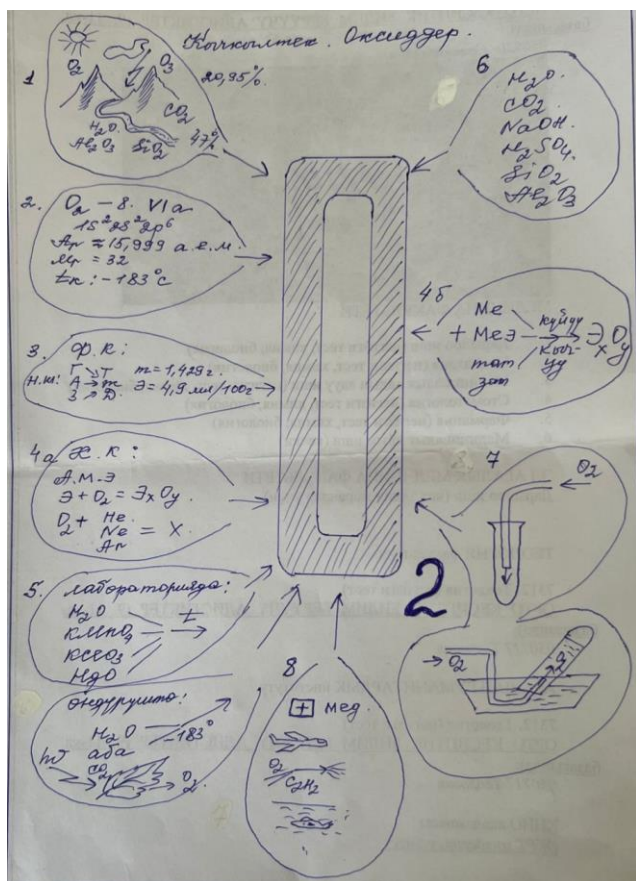 Кычкылтек. Оксиддер.
1
O₂
O₃
20,95%.
CO₂
H₂O.
Al₂O₃
SiO₂
47%
2.
O₂ – 8. VI a
1S²2S²2p⁶
Ar = 15,999 а.е.м.
Mr = 32
tк: -183°с
3.
Ф.К:
Н.ш:
Г Т
А → m
З Д.
m = 1,429г
Э = 4,9 мл/100г
4а Х.К:
А.М.Э
Э + O₂ = ЭxOy.
O₂ + He
Ne = X.
Ar
5. лабораторияда:
H₂O
KMnO₄
KClO₃
HgO
t
өндүрүштө:
H₂O
аба
-183°
hν
CO₂
O₂
6
H₂O.
CO₂.
NaOH.
H₂SO₄.
SiO₂
Al₂O₃
4б
Me
+ МеЭ
тат
зат
күйүү
кычкцу
ЭxOy
7
O₂
2
→O₂
8
+ мед.
O₂
C₂H₂